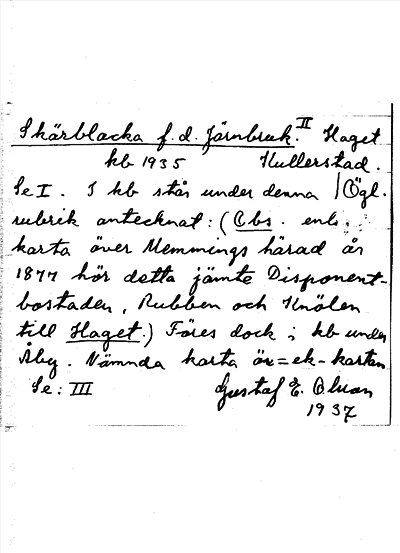 Skärblacka f.d. Järnbruk. II Haget
kb 1935 Kullerstad.
Se I. I kb står under denna / Ögl.
rubrik antecknat: (Obs. enl.
karta över Memmings härad år
1877 hör detta jämte Disponent-
bostaden, Rubben och Knölen
till Haget.) Föres dock i kb under
Åby. Nämnda karta är = ek-kartan
Se: III Gustaf E. Olson
1937